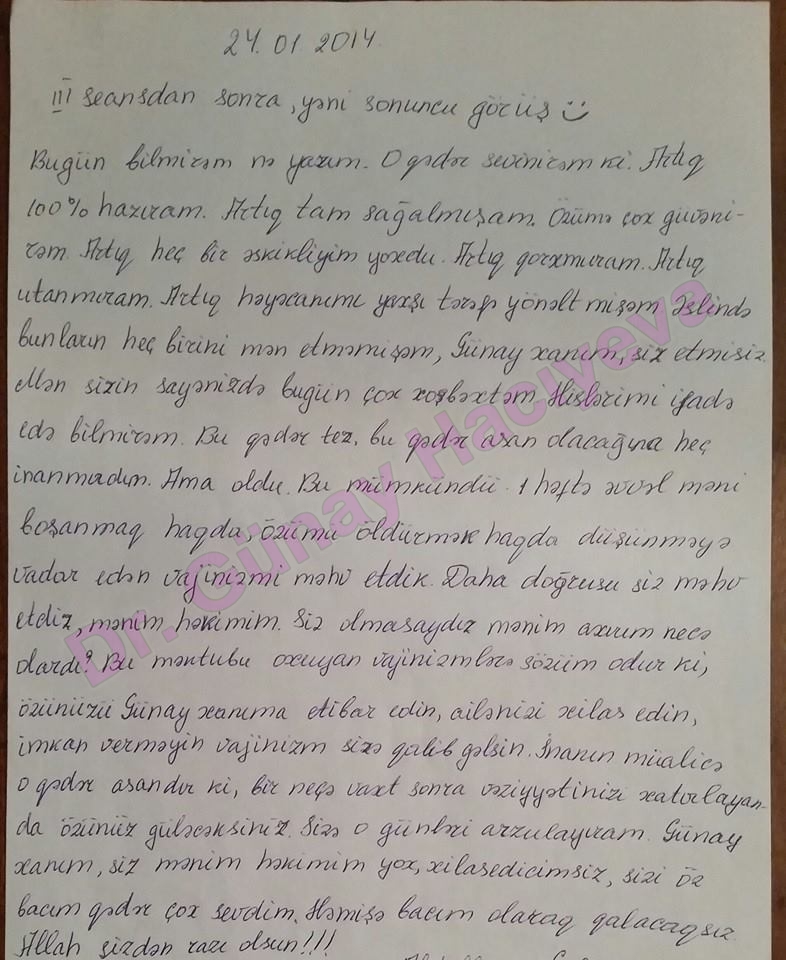 24. 01 2014.
III seansdan sonra, yəni sonuncu görüş
Bugün bilmirəm nə yazım. O qədər sevinirəm ki. Artıq
100% hazıram. Artıq tam sağalmışam. Özümə çox güvəni-
rəm. Artıq heç bir əskikliyim yoxdu. Artıq qorxmuram. Artıq
utanmıram. Artıq həyəcanımı yaxşı tərəfə yönəltmişəm. Əslində
bunların heç birini mən etməmişəm, Günay xanım, siz etmisiz.
Mən sizin sayənizdə bugün çox xoşbəxtəm. Hislərimi ifadə
edə bilmirəm. Bu qədər tez, bu qədər asan olacağına heç
inanmırdım. Ama oldu. Bu mümkündü. 1 həftə əvvəl məni
boşanmaq haqda, özümü öldürmək haqda düşünməyə
vadar edən vajinizmi məhv etdik. Daha doğrusu siz məhv
etdiz, mənim həkimim. Siz olmasaydız mənim axırım necə
olardı? Bu məktubu oxuyan vajinizmlərə sözüm odur ki,
özünüzü Günay xanıma etibar edin, ailənizi xilas edin,
imkan verməyin vajinizm sizə qalib gəlsin. İnanın müalicə
o qədər asandır ki, bir neçə vaxt sonra vəziyyətinizi xatırlayan-
da özünüz güləcəksiniz. Sizə o günləri arzulayıram. Günay
xanım, siz mənim həkimim yox, xilasedicimsiz, sizi öz
bacım qədər çox sevdim. Həmişə bacım olaraq qalacaqsız.
Allah sizdən razı olsun!!!
Dr. Günay Hacıyeva